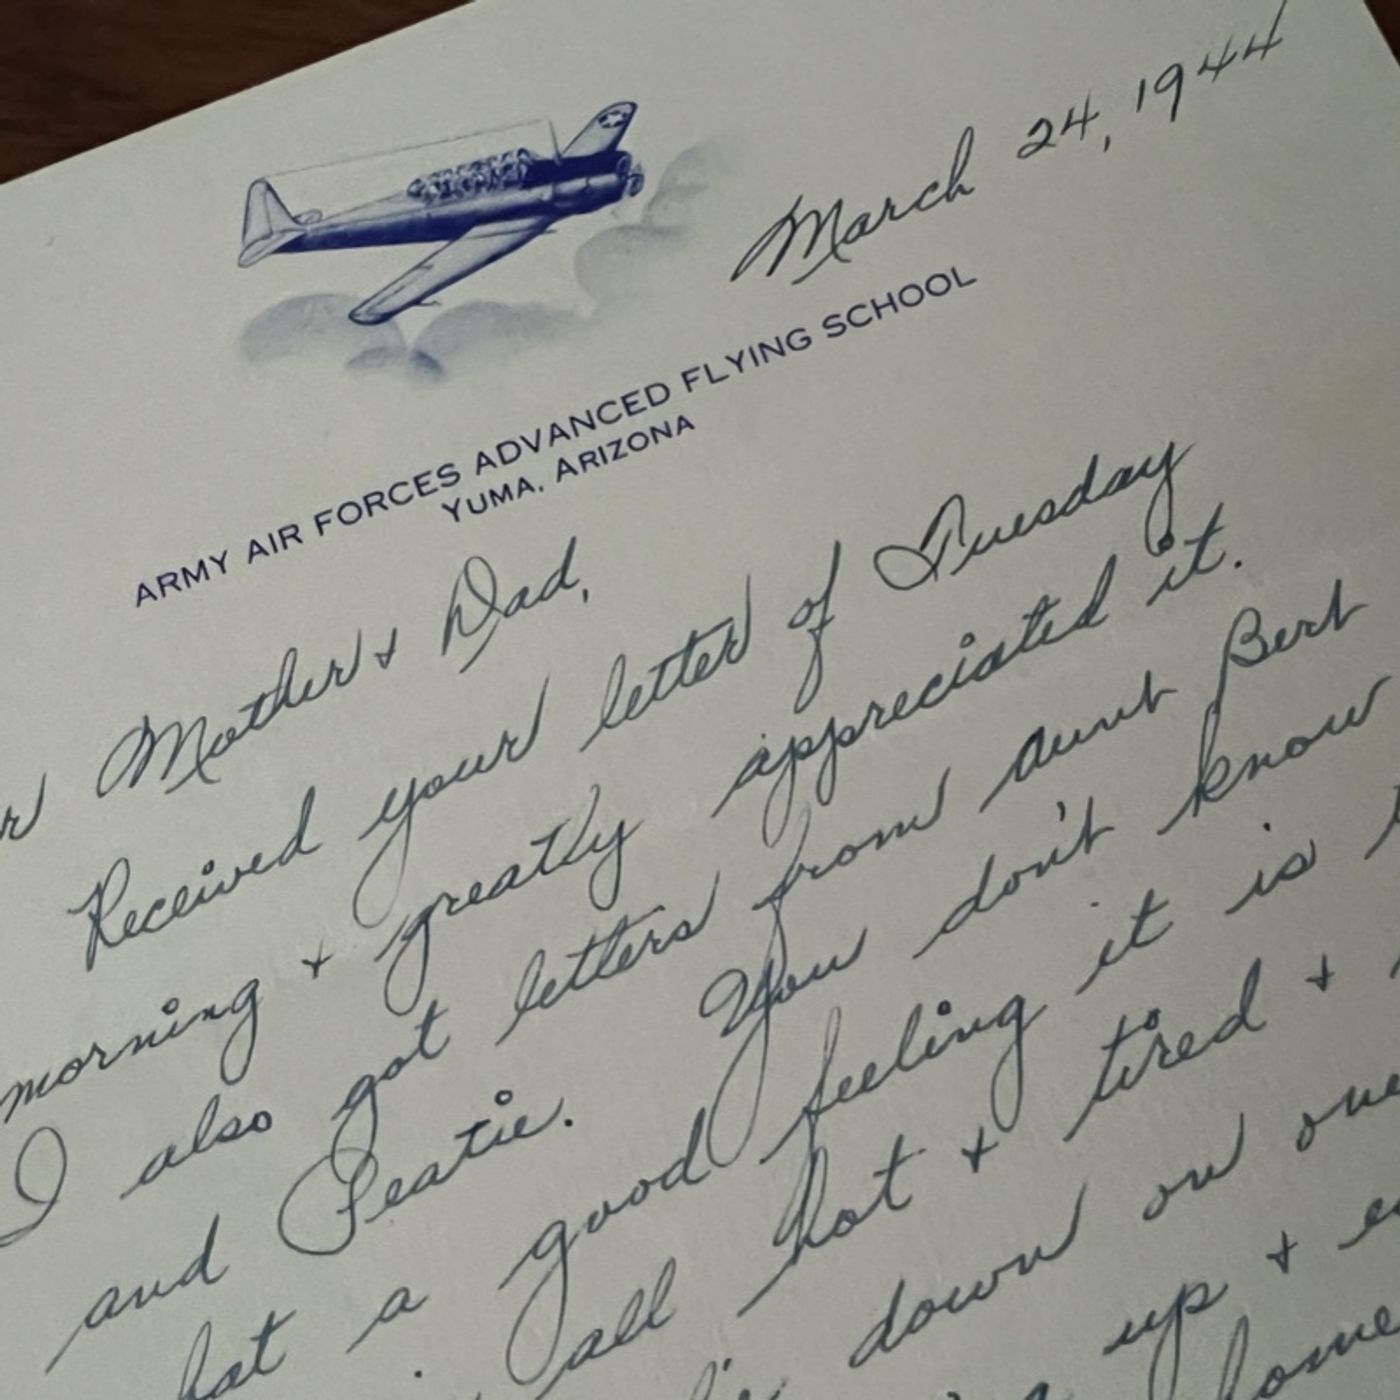 March 24, 1944
ARMY AIR FORCES ADVANCED FLYING SCHOOL
YUMA, ARIZONA
Mother & Dad,
Received your letter of Tuesday
morning & greatly appreciated it.
I also got letters from aunt Bert
and Peatie. You don't know
a good feeling it is
all hot & tired &
down on one
up & 
home